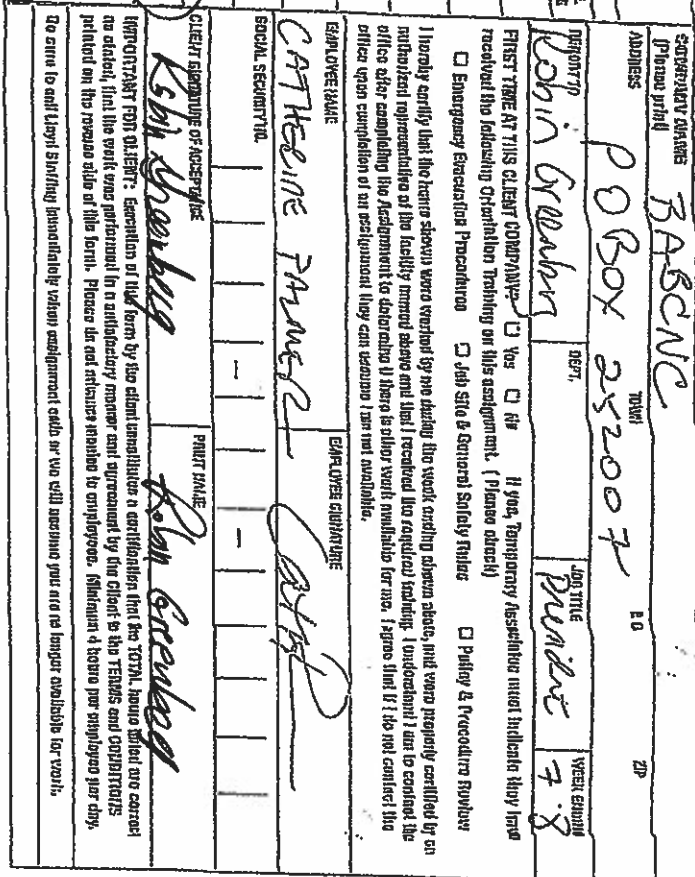 COMPANY NAME BABCNC
(Please print)
ADDRESS P O BOX 252007 TOWN P.O. ZIP
REPORT TO Robin Greenberg DEPT. JOB TITLE President WEEK ENDING 7.8
FIRST TIME AT THIS CLIENT COMPANY? ☐ Yes ☐ No If yes, Temporary Associates must indicate they have
received the following Orientation Training on this assignment. (Please check)
☐ Emergency Evacuation Procedures ☐ Job Site & General Safety Rules ☐ Policy & Procedure Review
I hereby certify that the hours shown were worked by me during the week ending shown above, and were properly certified by an
authorized representative of the facility named above and that I received the required training. I understand I am to contact the
office after completing the Assignment to determine if there is other work available for me. I agree that if I do not contact the
office upon completion of an assignment they can assume I am not available.
EMPLOYEE NAME EMPLOYEE SIGNATURE
CATHERINE PALMER
SOCIAL SECURITY NO. – –
CLIENT SIGNATURE OF ACCEPTANCE PRINT NAME
Robin Greenberg Robin Greenberg
IMPORTANT FOR CLIENT: Execution of this form by the client constitutes a certification that the TOTAL hours billed are correct
as stated, that the work was performed in a satisfactory manner and agreement by the Client to the TERMS and CONDITIONS
printed on the reverse side of this form. Please do not advance monies to employees. Minimum 4 hours per employee per day.
Be sure to call Lloyd Staffing immediately when assignment ends or we will assume you are no longer available for work.